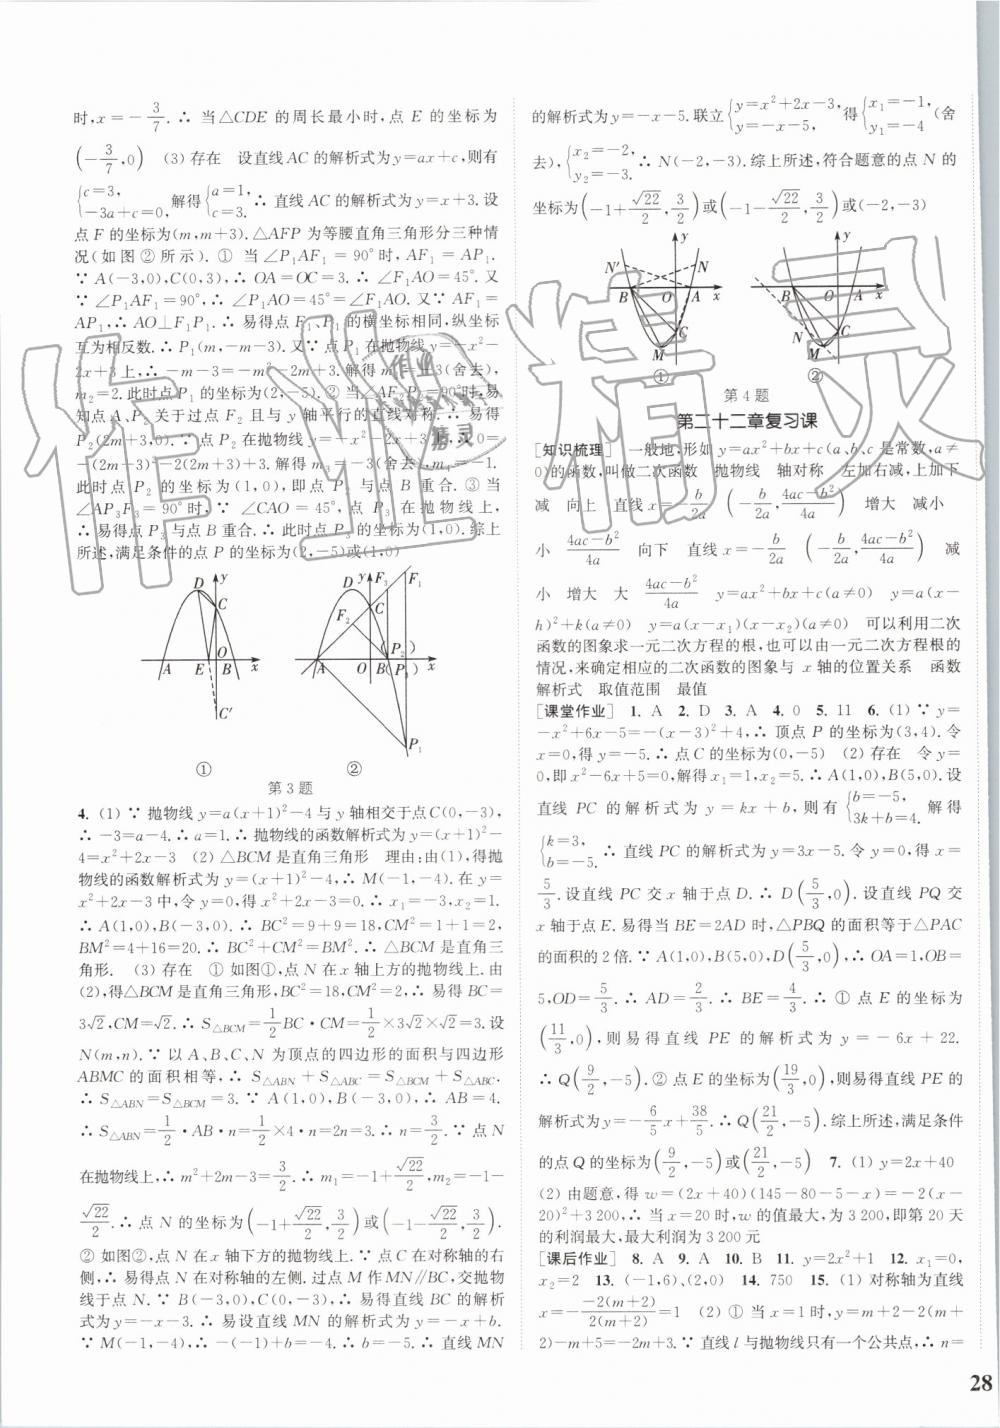 时,x=-3/7.∴ 当△CDE 的周长最小时,点 E 的坐标为
(-3/7,0) (3) 存在 设直线 AC 的解析式为 y=ax+c,则有
{c=3, -3a+c=0, 解得{a=1, c=3. ∴ 直线 AC 的解析式为 y=x+3. 设
点 F 的坐标为(m,m+3).△AFP 为等腰直角三角形分三种情
况(如图②所示). ① 当∠P₁AF₁=90°时,AF₁=AP₁.
∵ A(-3,0),C(0,3),∴ OA=OC=3.∴ ∠F₁AO=45°. 又
∵ ∠P₁AF₁=90°,∴ ∠P₁AO=45°=∠F₁AO. 又∵ AF₁=
AP₁,∴ AO⊥F₁P₁.∴ 易得点 F₁、P₁的横坐标相同,纵坐标
互为相反数.∴ P₁(m,-m-3). 又∵ 点 P₁在抛物线 y=-x²-2x+3
上,∴ -m-3=-m²-2m+3. 解得 m₁=-3(舍去),
m₂=2. 此时点 P₁ 的坐标为(2,-5). ② 当∠AF₂P₂=90°时,易
知点 A、P₂ 关于过点 F₂ 且与 y 轴平行的直线对称.∴ 易得
P₂(2m+3,0).∵ 点 P₂ 在抛物线上,∴ 0=
-(2m+3)²-2(2m+3)+3. 解得 m₃=-3(舍去),m₄=-1.
此时点 P₂ 的坐标为(1,0),即点 P₂ 与点 B 重合. ③ 当
∠AP₃F₃=90°时,∵ ∠CAO=45°,点 P₃ 在抛物线上,
∴ 易得点 P₃与点 B 重合.∴ 此时点 P₃的坐标为(1,0).综上
所述,满足条件的点 P 的坐标为(2,-5)或(1,0)
D y C A E O B x C′
①
D y F₃ F₁ C F₂ A O B (P₂) (P₃) x P₁
②
第 3 题
4. (1) ∵ 抛物线 y=a(x+1)²-4 与 y 轴相交于点 C(0,-3),
∴ -3=a-4.∴ a=1.∴ 抛物线的函数解析式为 y=(x+1)²-
4=x²+2x-3 (2) △BCM 是直角三角形 理由:由(1),得抛
物线的函数解析式为 y=(x+1)²-4,∴ M(-1,-4). 在 y=
x²+2x-3 中,令 y=0,得 x²+2x-3=0.∴ x₁=-3,x₂=1.
∴ A(1,0),B(-3,0).∴ BC²=9+9=18,CM²=1+1=2,
BM²=4+16=20.∴ BC²+CM²=BM².∴ △BCM 是直角三
角形. (3) 存在 ① 如图①,点 N 在 x 轴上方的抛物线上. 由
(2),得△BCM 是直角三角形,BC²=18,CM²=2,∴ 易得 BC=
3√2,CM=√2.∴ S△BCM=1/2 BC·CM=1/2×3√2×√2=3. 设
N(m,n).∵ 以 A、B、C、N 为顶点的四边形的面积与四边形
ABMC 的面积相等,∴ S△ABN+S△ABC=S△BCM+S△ABC.
∴ S△ABN=S△BCM=3.∵ A(1,0),B(-3,0),∴ AB=4.
∴ S△ABN=1/2·AB·n=1/2×4·n=2n=3.∴ n=3/2.∵ 点 N
在抛物线上,∴ m²+2m-3=3/2.∴ m₁=-1+√22/2,m₂=-1-
√22/2.∴ 点 N 的坐标为(-1+√22/2,3/2)或(-1-√22/2,3/2).
② 如图②,点 N 在 x 轴下方的抛物线上.∵ 点 C 在对称轴的右
侧,∴ 易得点 N 在对称轴的左侧. 过点 M 作 MN∥BC,交抛物
线于点 N.∵ B(-3,0),C(0,-3),∴ 易得直线 BC 的解析
式为 y=-x-3.∴ 易设直线 MN 的解析式为 y=-x+b.
∵ M(-1,-4),∴ -(-1)+b=-4.∴ b=-5.∴ 直线 MN
的解析式为 y=-x-5. 联立{y=x²+2x-3, y=-x-5, 得{x₁=-1, y₁=-4 (舍
去),{x₂=-2, y₂=-3. ∴ N(-2,-3). 综上所述,符合题意的点 N 的
坐标为(-1+√22/2,3/2)或(-1-√22/2,3/2)或(-2,-3)
y N′ N B O A x C M
①
y B O A x N C M
②
第 4 题
第二十二章复习课
[知识梳理] 一般地,形如 y=ax²+bx+c(a、b、c 是常数,a≠
0)的函数,叫做二次函数 抛物线 轴对称 左加右减,上加下
减 向上 直线 x=-b/2a (-b/2a,4ac-b²/4a) 增大 减小
小 4ac-b²/4a 向下 直线 x=-b/2a (-b/2a,4ac-b²/4a) 减
小 增大 大 4ac-b²/4a y=ax²+bx+c(a≠0) y=a(x-
h)²+k(a≠0) y=a(x-x₁)(x-x₂)(a≠0) 可以利用二次
函数的图象求一元二次方程的根,也可以由一元二次方程根的
情况,来确定相应的二次函数的图象与 x 轴的位置关系 函数
解析式 取值范围 最值
[课堂作业] 1. A 2. D 3. A 4. 0 5. 11 6. (1) ∵ y=
-x²+6x-5=-(x-3)²+4,∴ 顶点 P 的坐标为(3,4). 令
x=0,得 y=-5.∴ 点 C 的坐标为(0,-5) (2) 存在 令 y=
0,即 x²-6x+5=0,解得 x₁=1,x₂=5.∴ A(1,0),B(5,0). 设
直线 PC 的解析式为 y=kx+b,则有{b=-5, 3k+b=4. 解得
{k=3, b=-5. ∴ 直线 PC 的解析式为 y=3x-5. 令 y=0,得 x=
5/3. 设直线 PC 交 x 轴于点 D.∴ D(5/3,0). 设直线 PQ 交
x 轴于点 E. 易得当 BE=2AD 时,△PBQ 的面积等于△PAC
的面积的 2 倍.∵ A(1,0),B(5,0),D(5/3,0),∴ OA=1,OB=
5,OD=5/3.∴ AD=2/3.∴ BE=4/3.∴ ① 点 E 的坐标为
(11/3,0),则易得直线 PE 的解析式为 y=-6x+22.
∴ Q(9/2,-5). ② 点 E 的坐标为(19/3,0),则易得直线 PE 的
解析式为 y=-6/5x+38/5.∴ Q(21/2,-5). 综上所述,满足条件
的点 Q 的坐标为(9/2,-5)或(21/2,-5) 7. (1) y=2x+40
(2) 由题意,得 w=(2x+40)(145-80-5-x)=-2(x-
20)²+3 200,∴ 当 x=20 时,w 的值最大,为 3 200,即第 20 天
的利润最大,最大利润为 3 200 元
[课后作业] 8. A 9. A 10. B 11. y=2x²+1 12. x₁=0,
x₂=2 13. (-1,6)、(2,0) 14. 750 15. (1) 对称轴为直线
x=- -2(m+2)/2(m+2)=1 (2) ① 当 x=1 时,y=m+2-2(m+
2)-m+5=-2m+3.∵ 直线 l 与抛物线只有一个公共点,∴ n=
28
作业精灵